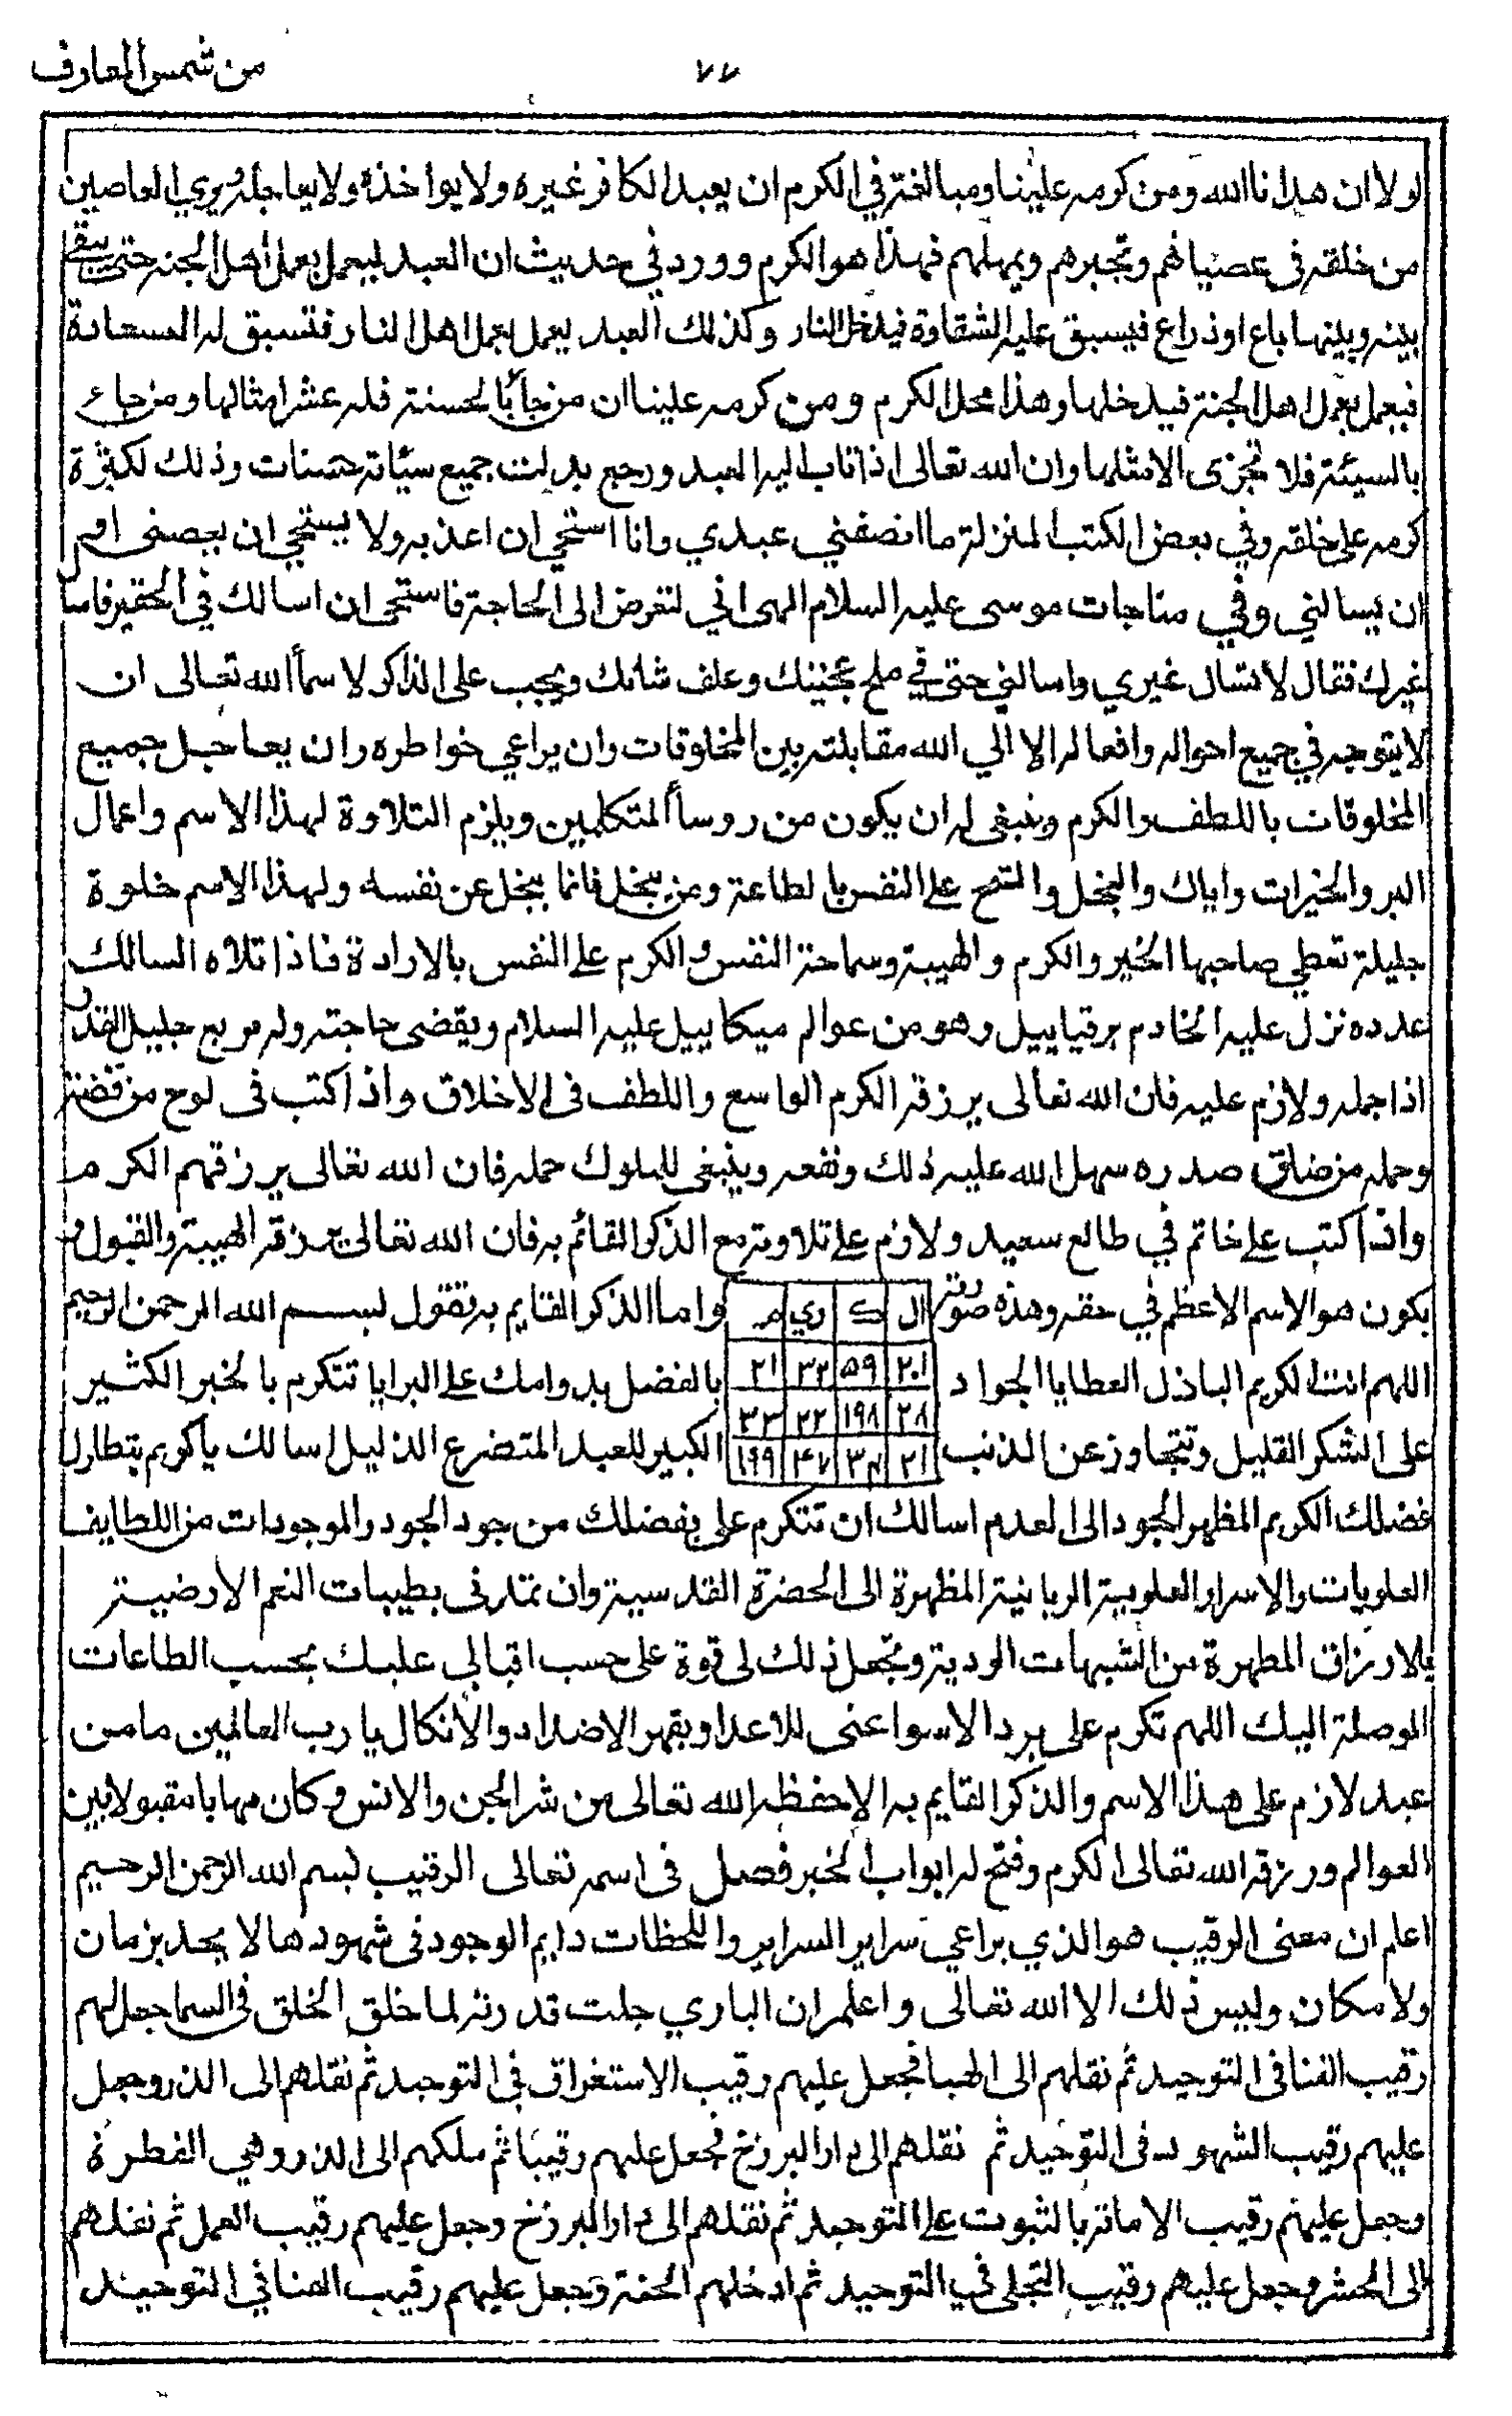 من شمس المعارف
٧٧
لولا ان هدانا الله ومن كرمه علينا ومبالغته في الكرم ان يعبد الكافر غيره ولا يواخذه ولا يعاجله ويري العاصين
من خلقه في عصيانهم وتجبرهم ويمهلهم فهذا هو الكرم وورد في حديث ان العبد ليعمل بعمل اهل الجنة حتى يبقى
بينه وبينها باع او ذراع فيسبق عليه الشقاوة فيدخل النار وكذلك العبد يعمل بعمل اهل النار فتسبق له السعادة
فيعمل بعمل اهل الجنة فيدخلها وهذا محل الكرم ومن كرمه علينا ان من جاء بالحسنة فله عشر امثالها ومن جاء
بالسيئة فلا تجزى الا مثلها وان الله تعالى اذا تاب اليه العبد ورجع بدلت جميع سيئاته حسنات وذلك لكثرة
كرمه على خلقه وفي بعض الكتب المنزلة ما انصفني عبدي وانا استحي ان اعذبه ولا يستحي ان يعصني
ان يسالني وفي مناجات موسى عليه السلام الهي اني لتعرض الى الحاجة فاستحي ان اسالك في الحقير فاسأ
غيرك فقال لا تسال غيري واسالني حتى في ملح عجينك وعلف شاتك ويجب على الذاكر لاسماء الله تعالى ان
لا يتوجه في جميع احواله وافعاله الا الي الله مقابلته بين المخلوقات وان يراعي خواطره وان يعاجل جميع
المخلوقات باللطف والكرم وينبغي له ان يكون من روسأ المتكلمين ويلزم التلاوة لهذا الاسم واعمال
البر والخيرات واياك والبخل والشح على النفس بالطاعة ومن يبخل فانما يبخل عن نفسه ولهذا الاسم خلوة
جليلة تعطي صاحبها الخير والكرم والهيبة وسماحة النفس والكرم على النفس بالارادة فاذا تلاه السالك
عدده نزل عليه الخادم برقياييل وهو من عوالم ميكاييل عليه السلام ويقضى حاجته وله مربع جليل القدر
اذا حمله ولازم عليه فان الله تعالى يرزقه الكرم الواسع واللطف في الاخلاق واذا كتب في لوح من فضة
وحمله من ضاق صدره سهل الله عليه ذلك ونفعه وينبغي للملوك حمله فان الله تعالى يرزقهم الكرم
واذا كتب على خاتم في طالع سعيد ولازم على تلاوته مع الذكر القائم به فان الله تعالى يرزقه الهيبة والقبول و
يكون هو الاسم الاعظم في حقه وهذه صورته | ال | ك | ري | م | واما الذكر القايم به تقول بسم الله الرحمن الرحيم
اللهم انت الكريم الباذل العطايا الجواد | ٢٠١ | ٥٩ | ٣٢ | ٢١ | بالفضل بدوامك على البرايا تتكرم بالخير الكثير
على الشكر القليل وتتجاوز عن الذنب | ٢٨ | ١٩٨ | ٢٢ | ٣٣ | الكبير للعبد المتضرع الذليل اسالك يا كريم بتطاول
| ٢١ | ٣٤ | ٤٧ | ١٩٩ |
فضلك الكريم المظهر الجود الى العدم اسالك ان تتكرم علي بفضلك من جود الجود والموجودات من اللطايف
العلويات والاسرار العلوية الربانية المظهرة الى الحضرة القدسية وان تمدني بطيبات النعم الارضية
بالارزاق المطهرة من الشبهات الودية وتجعل ذلك لي قوة على حسب اقبالي عليك بحسب الطاعات
الموصلة اليك اللهم تكرم علي برد الاسوا عني للاعدا وبقهر الاضداد والانكال يا رب العالمين ما من
عبد لازم على هذا الاسم والذكر القايم به الا حفظه الله تعالى من شر الجن والانس وكان مهابا مقبولا بين
العوالم ورزقه الله تعالى الكرم وفتح له ابواب الخير فصل في اسمه تعالى الرقيب بسم الله الرحمن الرحيم
اعلم ان معنى الرقيب هو الذي يراعي سراير السراير واللحظات دايم الوجود في شهودها لا يحد بزمان
ولا مكان وليس ذلك الا الله تعالى واعلم ان الباري جلت قدرته لما خلق الخلق في السما جعل لهم
رقيب الفنا في التوحيد ثم نقلهم الى الهبا فجعل عليهم رقيب الاستغراق في التوحيد ثم نقلهم الى الذر وجعل
عليهم رقيب الشهود في التوحيد ثم نقلهم الى دار البرزخ فجعل عليهم رقيبا ثم ملكهم الى الذر وهي الفطرة
وجعل عليهم رقيب الامانة بالثبوت على التوحيد ثم نقلهم الى دار البرزخ وجعل عليهم رقيب العمل ثم نقلهم
الى الحشر وجعل عليهم رقيب التجلى في التوحيد ثم ادخلهم الجنة وجعل عليهم رقيب الفنا في التوحيد